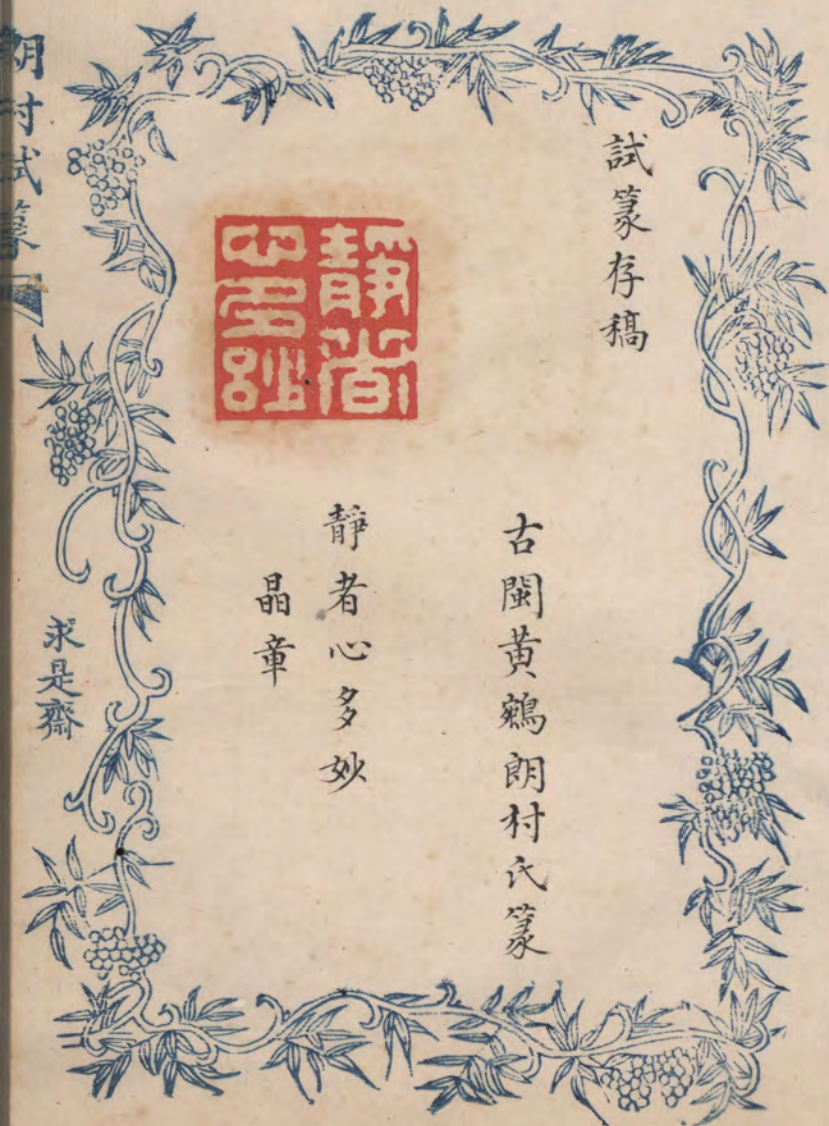 試篆存稿
古閩黄鵷朗村氏篆
靜者心多妙
靜者心多妙
晶章
朗村試篆
求是齋